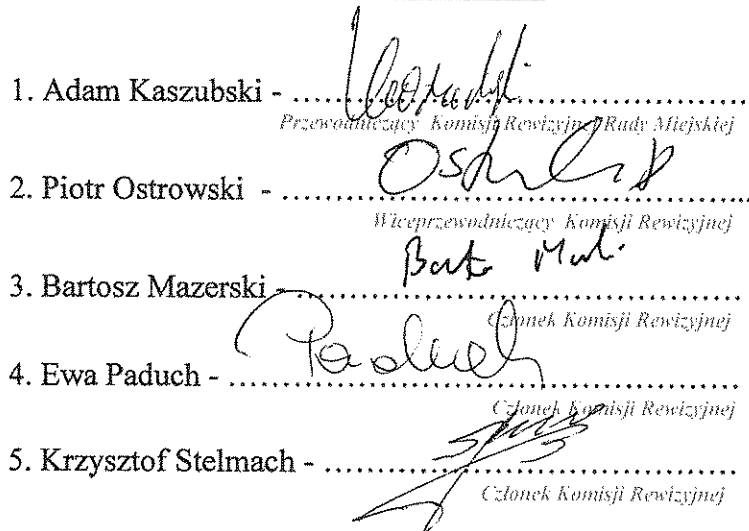 1. Adam Kaszubski - ........................................
Przewodniczący Komisji Rewizyjnej Rady Miejskiej
2. Piotr Ostrowski - ........................................
Wiceprzewodniczący Komisji Rewizyjnej
3. Bartosz Mazerski - ........................................
Członek Komisji Rewizyjnej
Paduch
4. Ewa Paduch - ........................................
Członek Komisji Rewizyjnej
5. Krzysztof Stelmach - ........................................
Członek Komisji Rewizyjnej